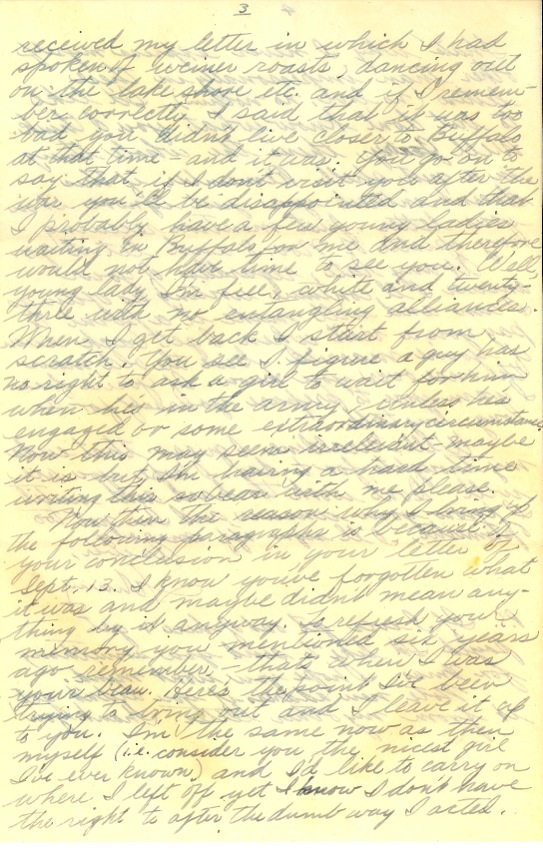 3
received my letter in which I had
spoken of weiner roasts, dancing out
on the lake shore etc. and if I remem-
ber correctly I said that it was too
bad you didn't live closer to Buffalo
at that time - and it was. You go on to
say that if I don't visit you after the
war you'll be disappointed and that
I probably have a few young ladies
waiting in Buffalo on me and therefore
would not have time to see you. Well,
young lady I'm free, white and twenty-
three with no entangling alliances.
When I get back I start from
scratch. You see I figure a guy has
no right to ask a girl to wait for him
when he's in the army, unless he's
engaged or some extraordinary circumstance.
Now this may seem irrelevant - maybe
it is but I'm having a hard time
writing this so bear with me please.
Now then the reason why I bring up
the following paragraphs is because of
your conclusion in your letter of
Sept. 13. I know you've forgotten what
it was and maybe didn't mean any-
thing by it anyway. To refresh your
memory you mentioned six years
ago remember - that's when I was
your beau. Here's the point I've been
trying to bring out and I leave it up
to you. I'm the same now as then
myself (i.e. consider you the nicest girl
I've ever known) and I'd like to carry on
where I left off yet I know I don't have
the right to after the dumb way I acted.